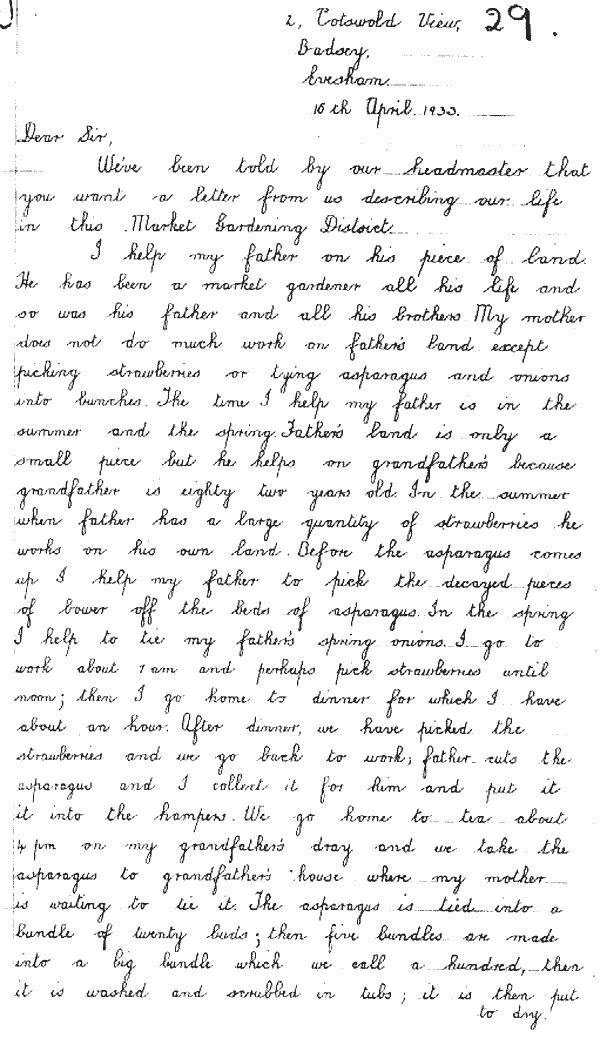 2, Cotswold View, 29.
Badsey,
Evesham.
16th April. 1933.
Dear Sir,
We've been told by our headmaster that
you want a letter from us describing our life
in this Market Gardening District.
I help my father on his piece of land.
He has been a market gardener all his life and
so was his father and all his brothers. My mother
does not do much work on father's land except
picking strawberries or tying asparagus and onions
into bunches. The time I help my father is in the
summer and the spring. Father's land is only a
small piece but he helps on grandfather's because
grandfather is eighty two years old. In the summer
when father has a large quantity of strawberries he
works on his own land. Before the asparagus comes
up I help my father to pick the decayed pieces
of bower off the beds of asparagus. In the spring
I help to tie my father's spring onions. I go to
work about 7 am and perhaps pick strawberries until
noon; then I go home to dinner for which I have
about an hour. After dinner, we have picked the
strawberries and we go back to work; father cuts the
asparagus and I collect it for him and put it
it into the hampers. We go home to tea about
4 pm on my grandfather's dray and we take the
asparagus to grandfather's house where my mother
is waiting to tie it. The asparagus is tied into a
bundle of twenty buds; then five bundles are made
into a big bundle which we call a hundred, then
it is washed and scrubbed in tubs; it is then put
to dry.